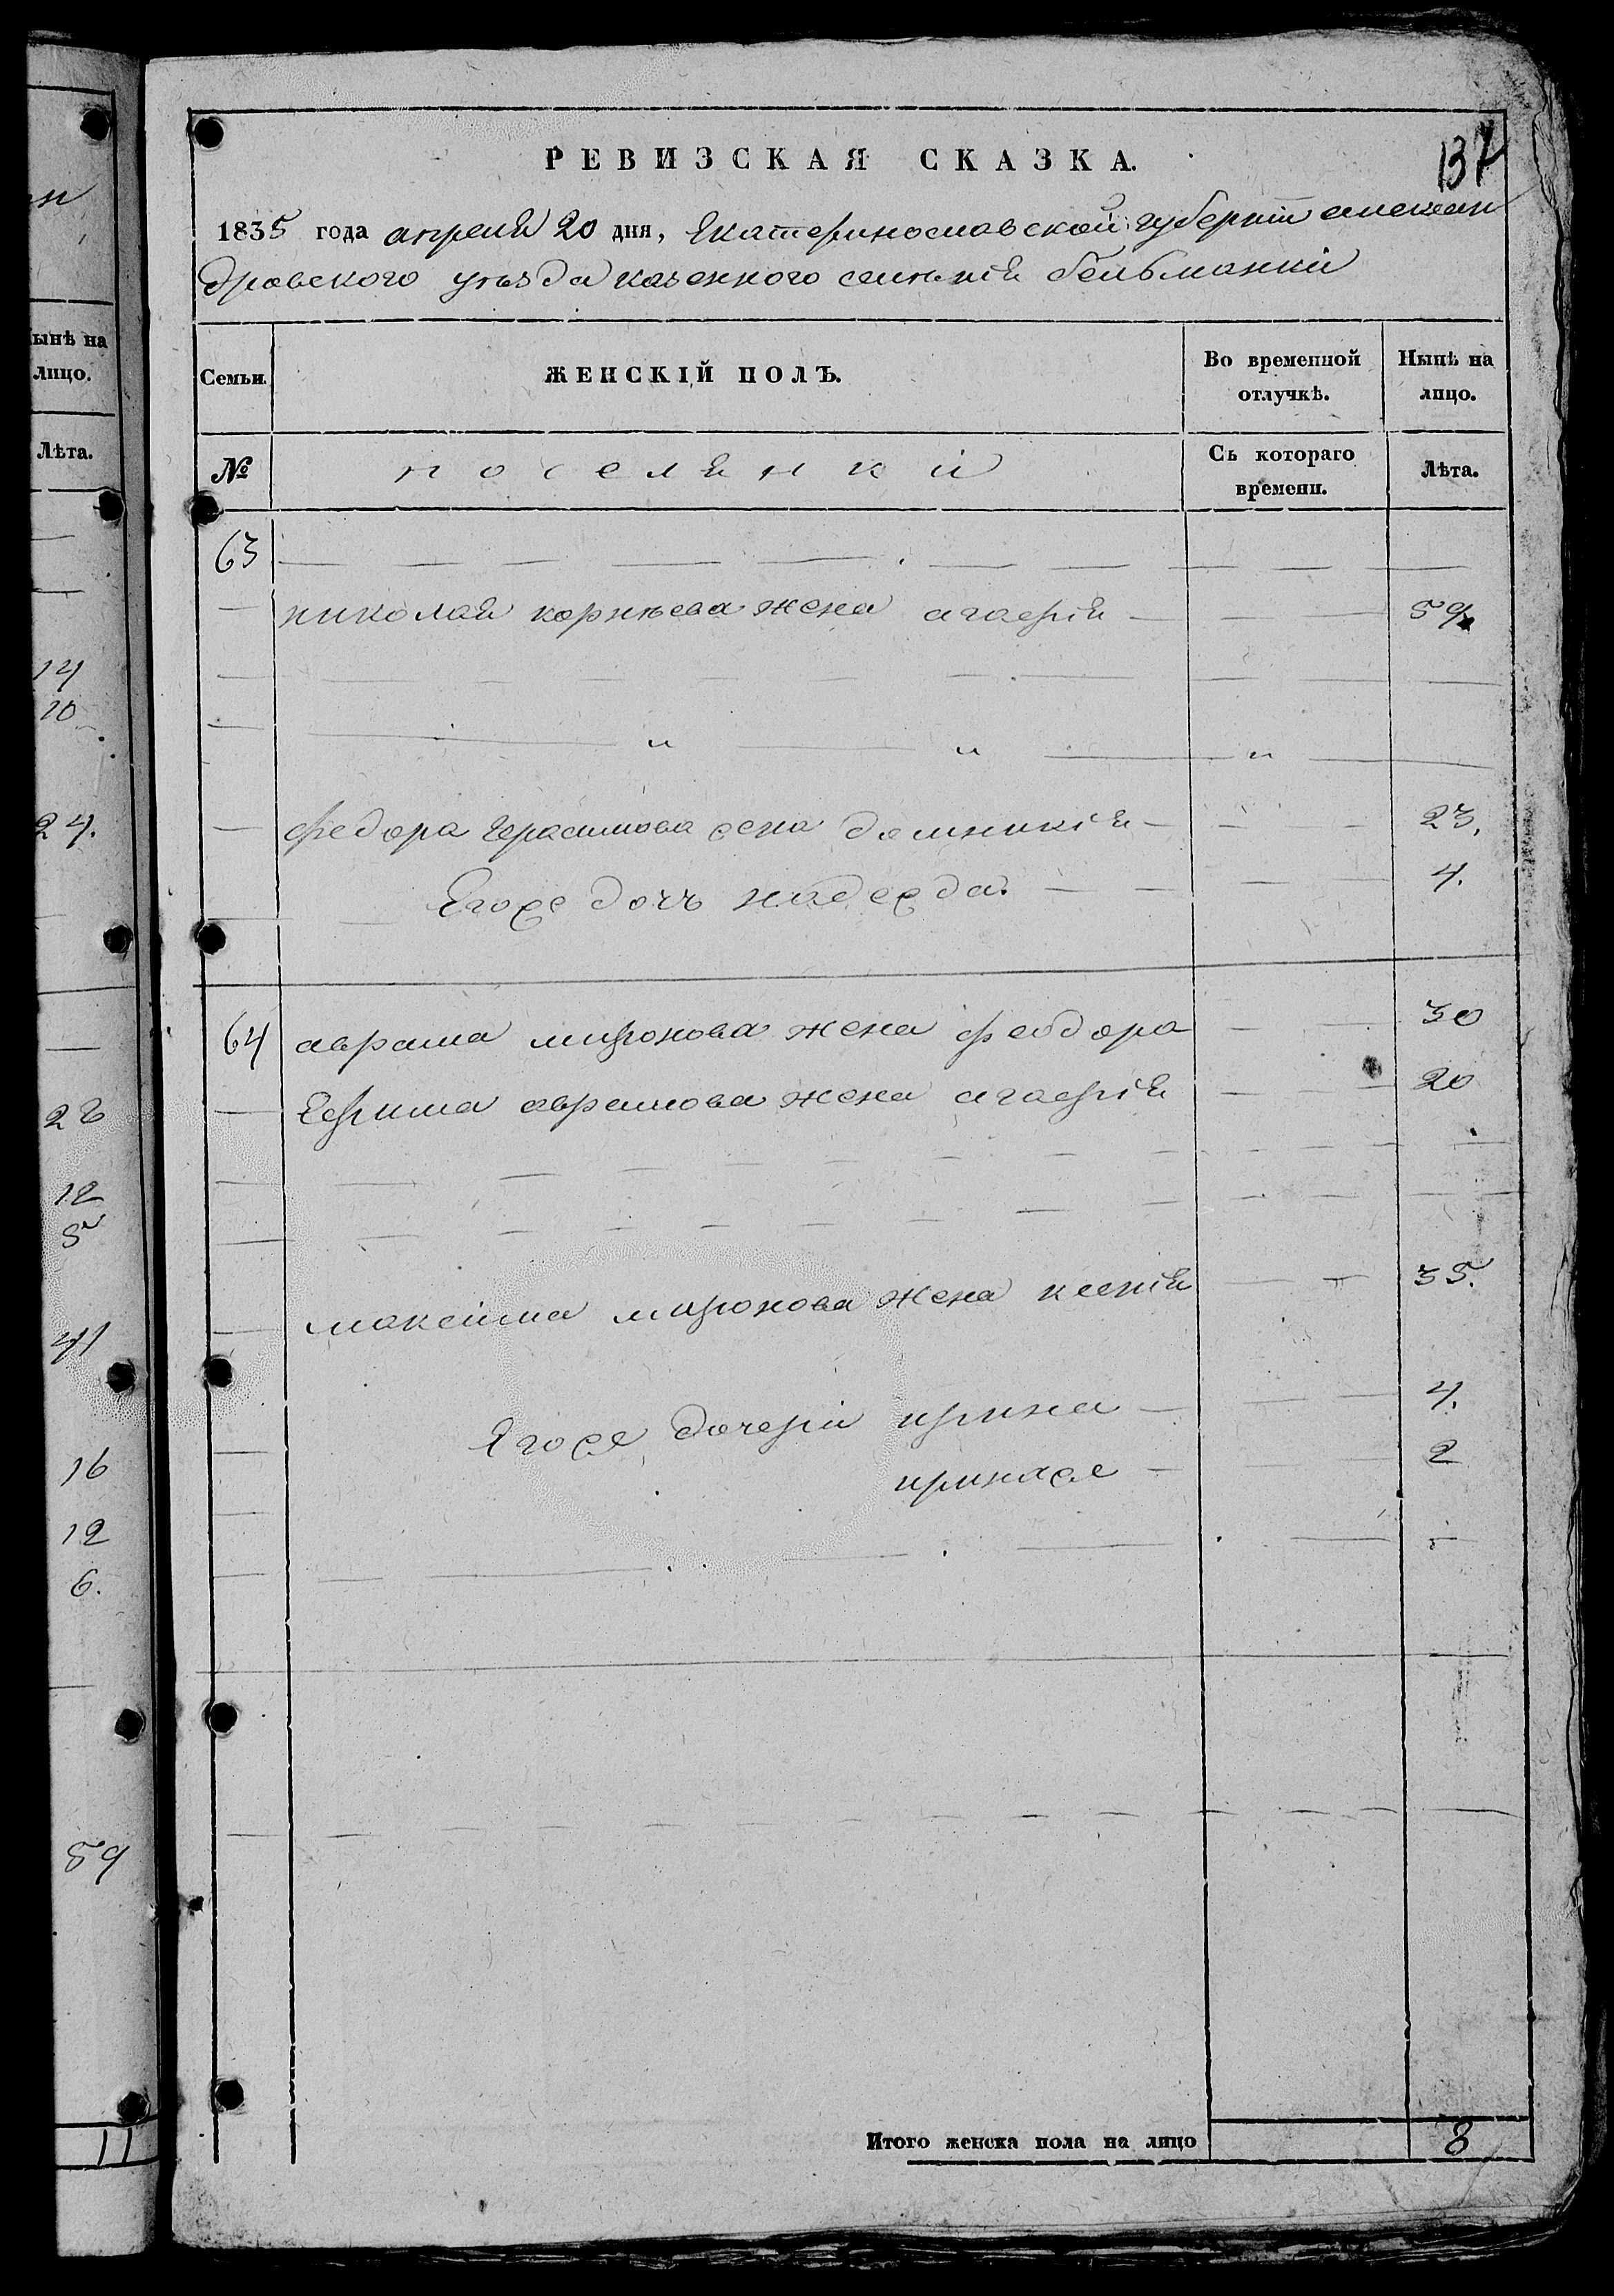 РЕВИЗСКАЯ СКАЗКА.
137
1835 года апреля 20 дня, Екатеринославской губернии алексан
дровского уезда казенного селения бельманки
Семьи.
ЖЕНСКІЙ ПОЛЪ.
Во временной отлучкѣ.
Нынѣ на лицо.
№
поселянки
Съ котораго времени.
Лѣта.
63
николая корнѣева жена агафія 59
федора Герасимова жена домникія 23.
Егоже дочь надежда. 4.
64 аврама миронова жена феодора 30
Ефима аврамова жена агафія 20
максима миронова жена ксенія 35.
Егоже дочери ирина 4.
иринаже 2
Итого женска пола на лицо 8
ынѣ на
лицо.
Лѣта.
14
10
24.
12
5
41
16
12
6.
59
11